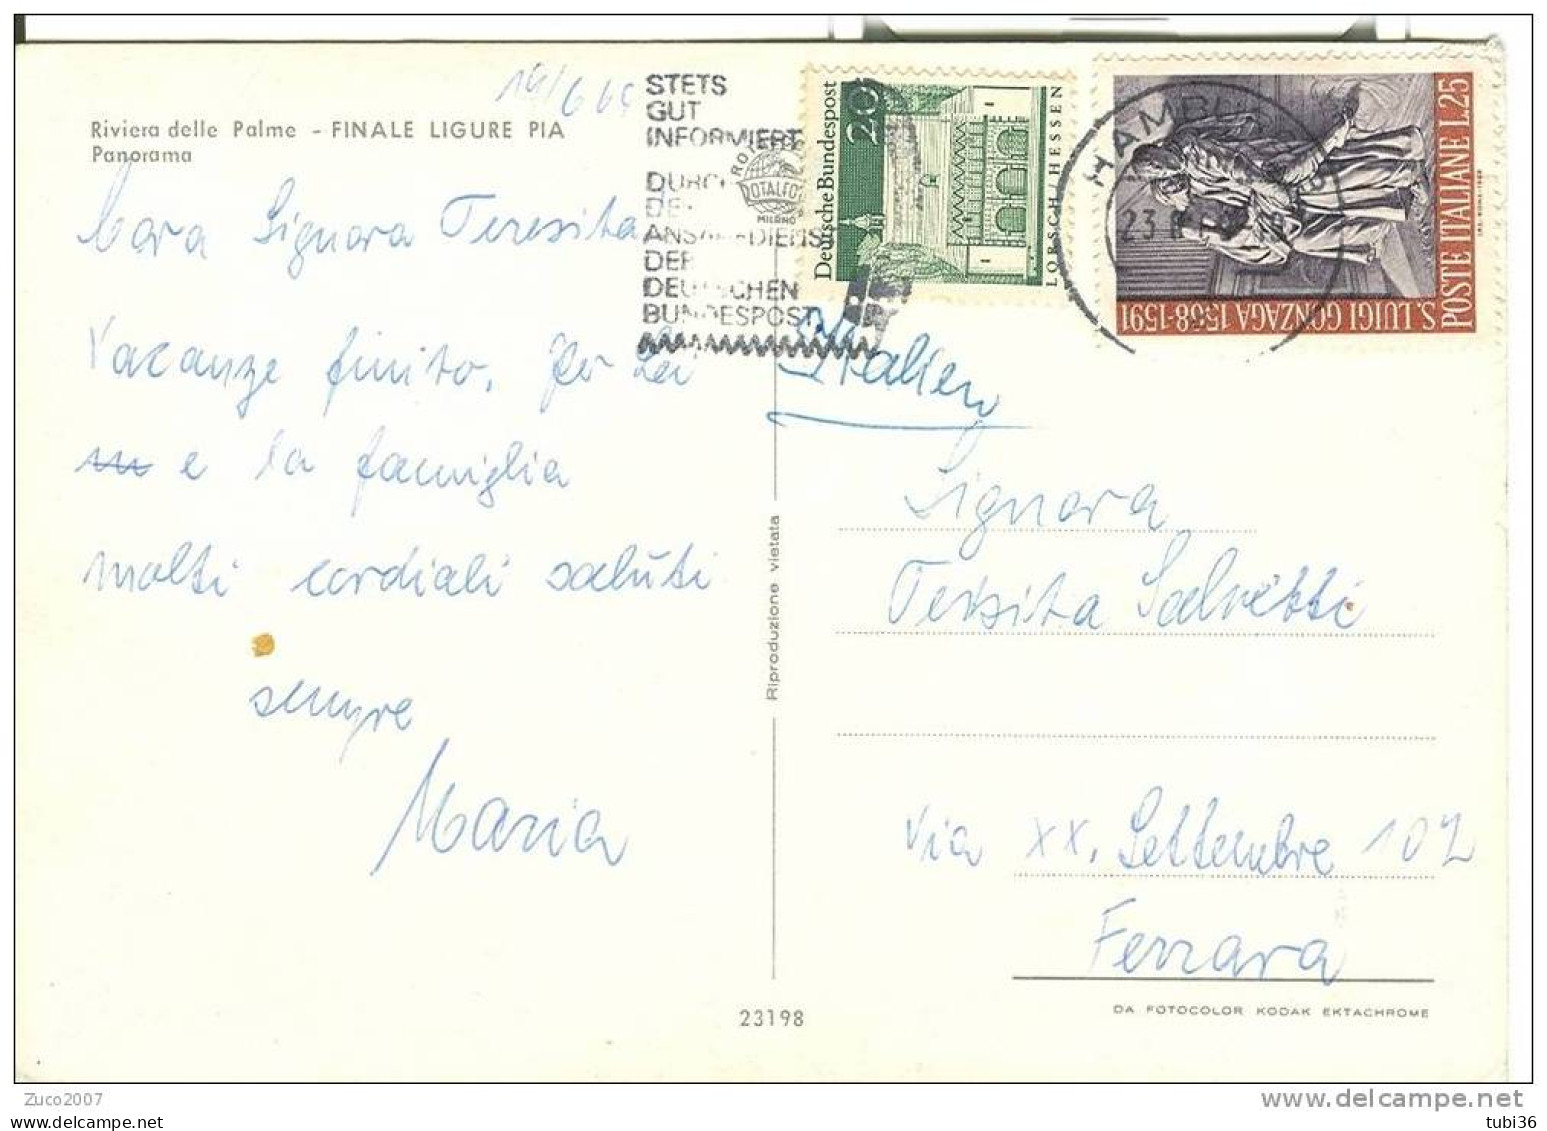 Riviera delle Palme - FINALE LIGURE PIA
Panorama
Cara Signora Teresita
Vacanze finito. Per Lei
e la famiglia
molti cordiali saluti
sempre
Maria
STETS
GUT
INFORMIERT
DER
DEUTSCHEN
BUNDESPOST
MILANO
Deutsche Bundespost
20
LORSCH HESSEN
HAMBURG
POSTE ITALIANE L.25
S. LUIGI GONZAGA 1568-1591
Italien
Signora
Teresita Salvetti
Via XX. Settembre 102
Ferrara
Riproduzione vietata
23198
DA FOTOCOLOR KODAK EKTACHROME
Zuco2007
delcampe.net
tubi36